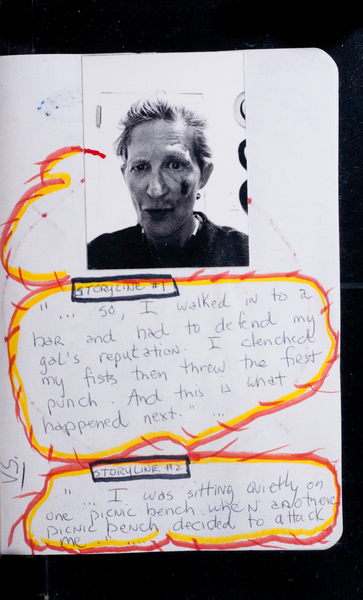 STORYLINE #1
"... So, I walked in to a
bar and had to defend my
gal's reputation. I clenched
my fists then threw the first
punch. And this is what
happened next." ...
VS.
STORYLINE #2
"... I was sitting quietly on
one picnic bench when another
picnic bench decided to attack
me..." ...